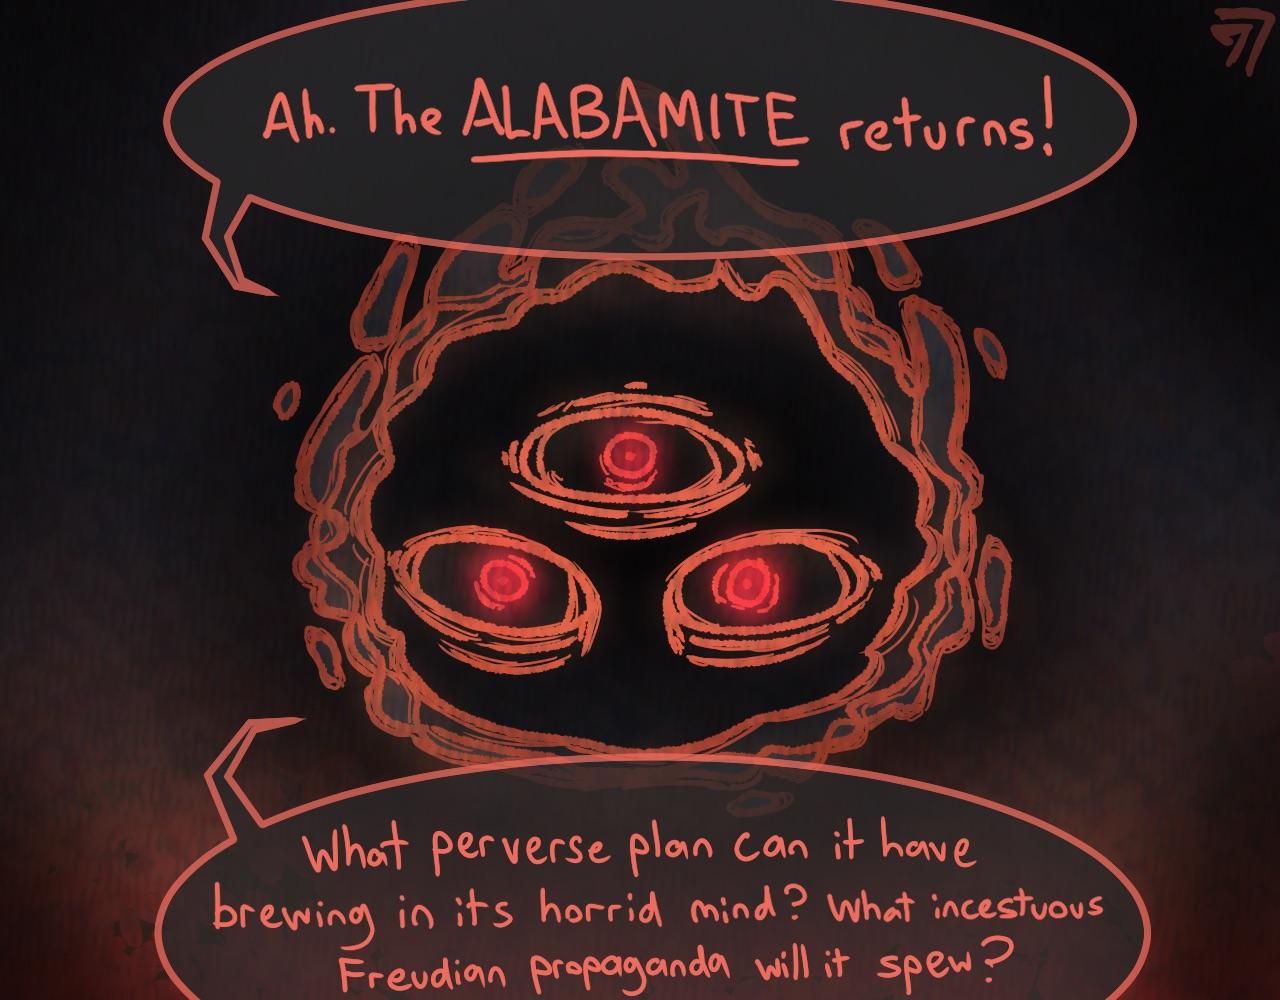 Ah. The ALABAMITE returns!
What perverse plan can it have
brewing in its horrid mind? What incestuous
Freudian propaganda will it spew?